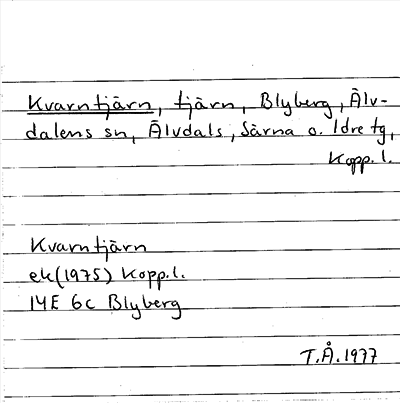 Kvarntjärn, tjärn, Blyberg, Älv-
dalens sn, Älvdals, Särna o. Idre tg,
Kopp. l.
Kvarntjärn
ek(1975) Kopp.l.
14E 6c Blyberg
T.Å.1977